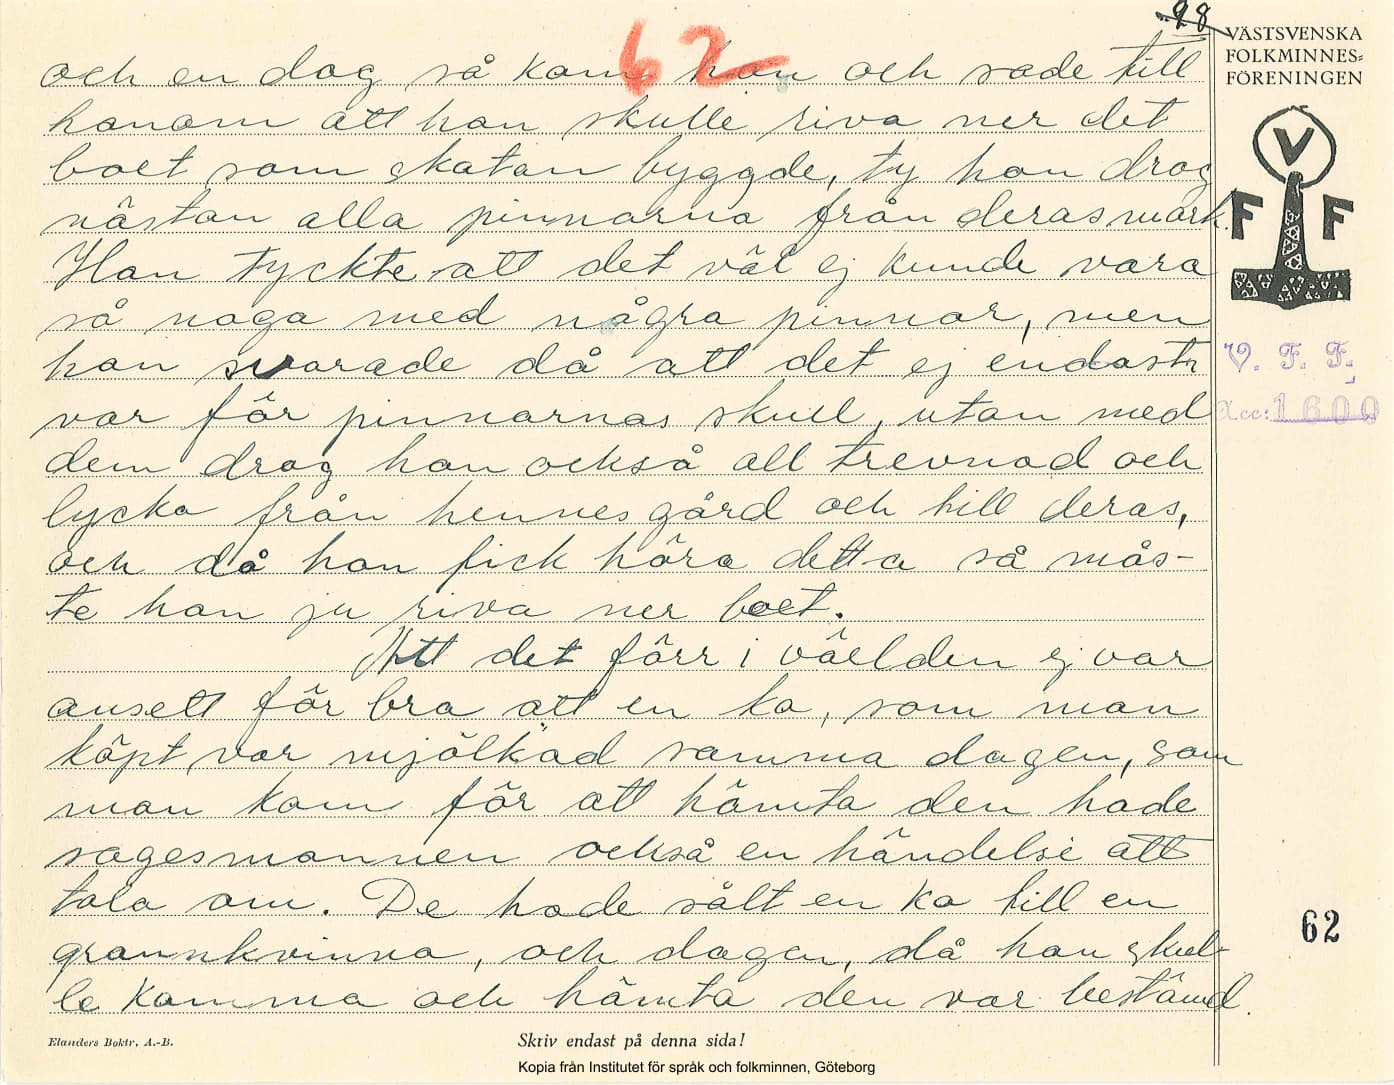 62
28
och en dag så kom hon och sade till
honom att han skulle riva ner det
boet som skatan byggde, ty hon drog
nästan alla pinnarna från deras mark.
Han tyckte att det väl ej kunde vara
så noga med några pinnar, men
hon svarade då att det ej endast
var för pinnarnas skull, utan med
dem drog hon också all trevnad och
lycka från hennes gård och till deras,
och då han fick höra detta så mås-
te han ju riva ner boet.
Att det förr i världen ej var
ansett för bra att en ko, som man
köpt, var mjölkad samma dagen, som
man kom för att hämta den hade
sagesmannen också en händelse att
tala om. De hade sålt en ko till en
grannkvinna, och dagen, då hon skul-
le komma och hämta den var bestämd.
VÄSTSVENSKA
FOLKMINNES=
FÖRENINGEN
V
F F
V. F. F.
Acc: 1600
62
Elanders Boktr. A.-B.
Skriv endast på denna sida!
Kopia från Institutet för språk och folkminnen, Göteborg